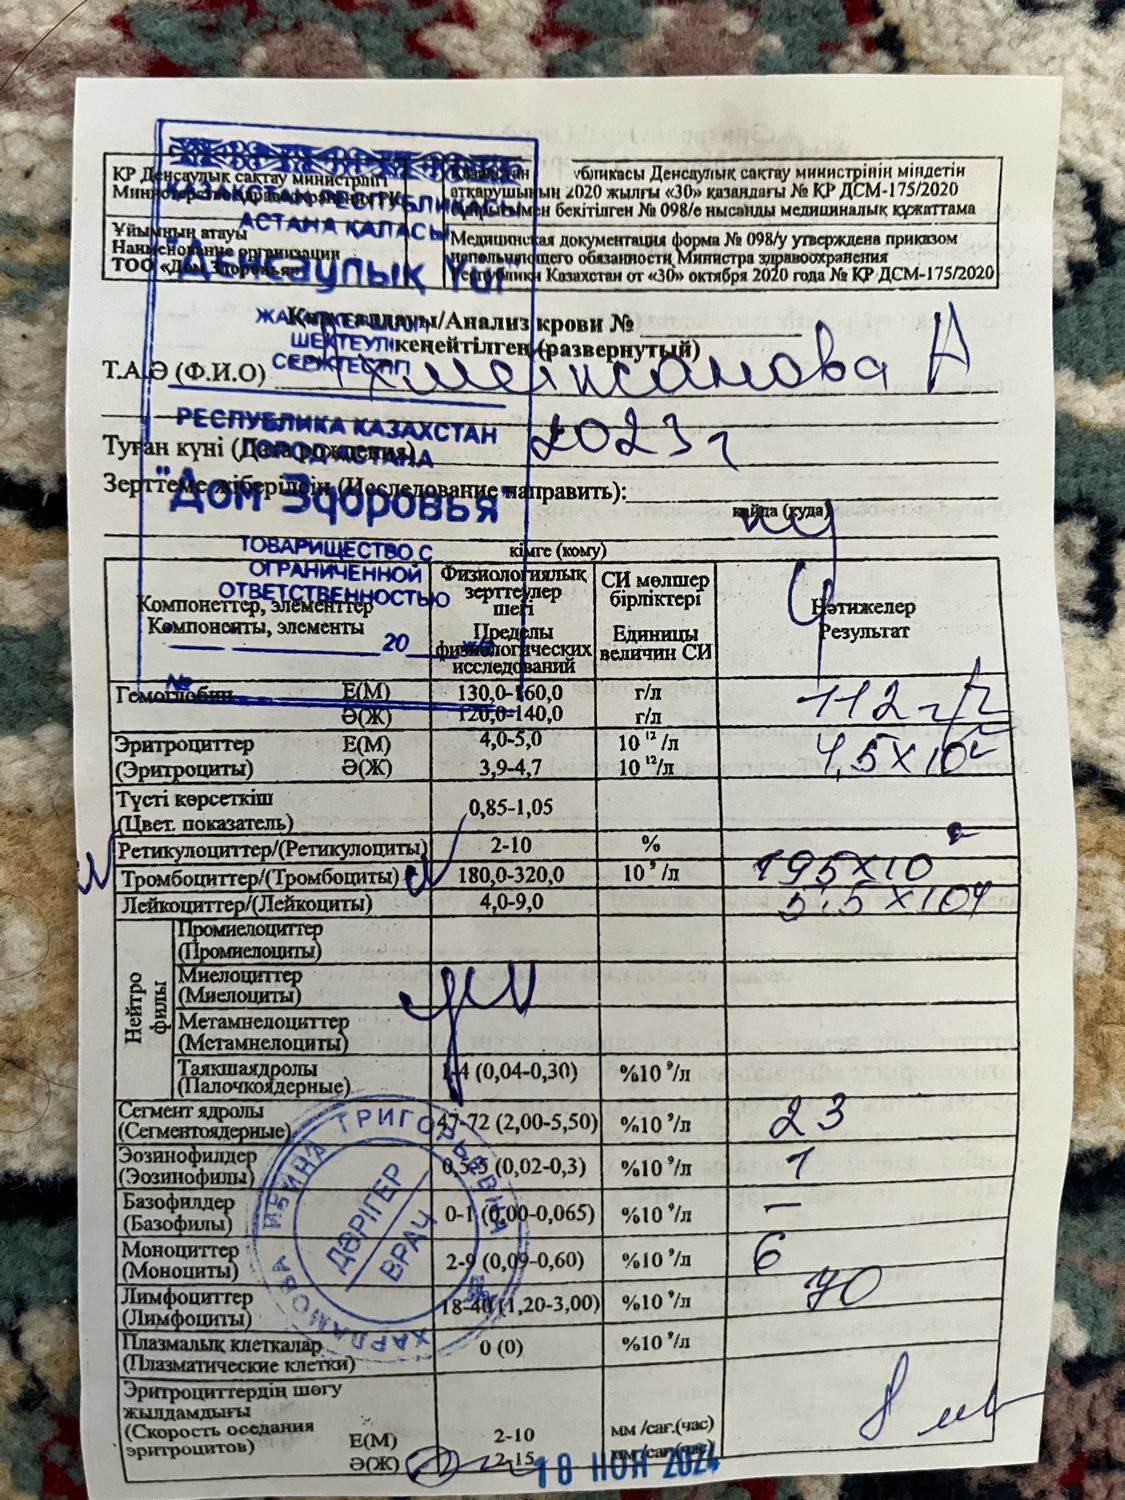 ҚР Денсаулық сақтау министрлігі
Министерство здравоохранения РК
Ұйымның атауы
Наименование организации
ТОО «Дом Здоровья»
убликасы Денсаулық сақтау министрінің міндетін
атқарушының 2020 жылғы «30» қазандағы № ҚР ДСМ-175/2020
бұйрығымен бекітілген № 098/е нысанды медициналық құжаттама
Медицинская документация форма № 098/у утверждена приказом
исполняющего обязанности Министра здравоохранения
Республики Казахстан от «30» октября 2020 года № ҚР ДСМ-175/2020
ҚАЗАҚСТАН РЕСПУБЛИКАСЫ
АСТАНА ҚАЛАСЫ
"Денсаулық үйі"
ЖАУАПКЕРШІЛІГІ
ШЕКТЕУЛІ
СЕРІКТЕСТІГІ
РЕСПУБЛИКА КАЗАХСТАН
ГОРОД АСТАНА
"Дом Здоровья"
ТОВАРИЩЕСТВО С
ОГРАНИЧЕННОЙ
ОТВЕТСТВЕННОСТЬЮ
20
№
Қан талдауы/Анализ крови №
кеңейтілген (развернутый)
Т.А.Ә (Ф.И.О) Ахметжанова А
Туған күні (Дата рождения) 2023 г
Зерттеме жіберілсін (Исследование направить):
қайда (куда)
кімге (кому)
Компонеттер, элементтер
Компоненты, элементы
Физиологиялық
зерттеулер
шегі
Пределы
физиологических
исследований
СИ мөлшер
бірліктері
Единицы
величин СИ
Нәтижелер
Результат
Гемоглобин Е(М) 130,0-160,0 г/л 112 г/л
Ә(Ж) 120,0-140,0 г/л
Эритроциттер Е(М) 4,0-5,0 10 12 /л 4,5х10 12
(Эритроциты) Ә(Ж) 3,9-4,7 10 12/л
Түсті көрсеткіш 0,85-1,05
(Цвет. показатель)
Ретикулоциттер/(Ретикулоциты) 2-10 %
Тромбоциттер/(Тромбоциты) 180,0-320,0 10 9 /л 195х10 9
Лейкоциттер/(Лейкоциты) 4,0-9,0 5,5х10 9
Нейтро
филы
Промиелоциттер
(Промиелоциты)
Миелоциттер
(Миелоциты)
Метамнелоциттер
(Метамнелоциты)
Таяқшаядролы 1-4 (0,04-0,30) %10 9/л
(Палочкоядерные)
Сегмент ядролы 47-72 (2,00-5,50) %10 9/л 23
(Сегментоядерные)
Эозинофилдер 0,5-5 (0,02-0,3) %10 9/л 1
(Эозинофилы)
Базофилдер 0-1 (0,00-0,065) %10 9/л –
(Базофилы)
Моноциттер 2-9 (0,09-0,60) %10 9/л 6
(Моноциты)
Лимфоциттер 18-40 (1,20-3,00) %10 9/л 70
(Лимфоциты)
Плазмалық клеткалар 0 (0) %10 9/л
(Плазматические клетки)
Эритроциттердің шөгу
жылдамдығы
(Скорость оседания
эритроцитов) Е(М) 2-10 мм /сағ.(час) 8 мм
Ә(Ж) 2-15 мм /сағ.(час)
ХАРЛАМОВА ИРИНА ГРИГОРЬЕВНА
ДӘРІГЕР
ВРАЧ
18 НОЯ 2024